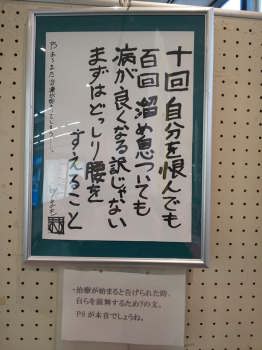 十回 自分を恨んでも
百回 溜め息ついても
病が良くなる訳じゃない
まずはどっしり腰を
すえること
・治療が始まると告げられた時、
自らを鼓舞するための文。
PSが本音でしょうね。